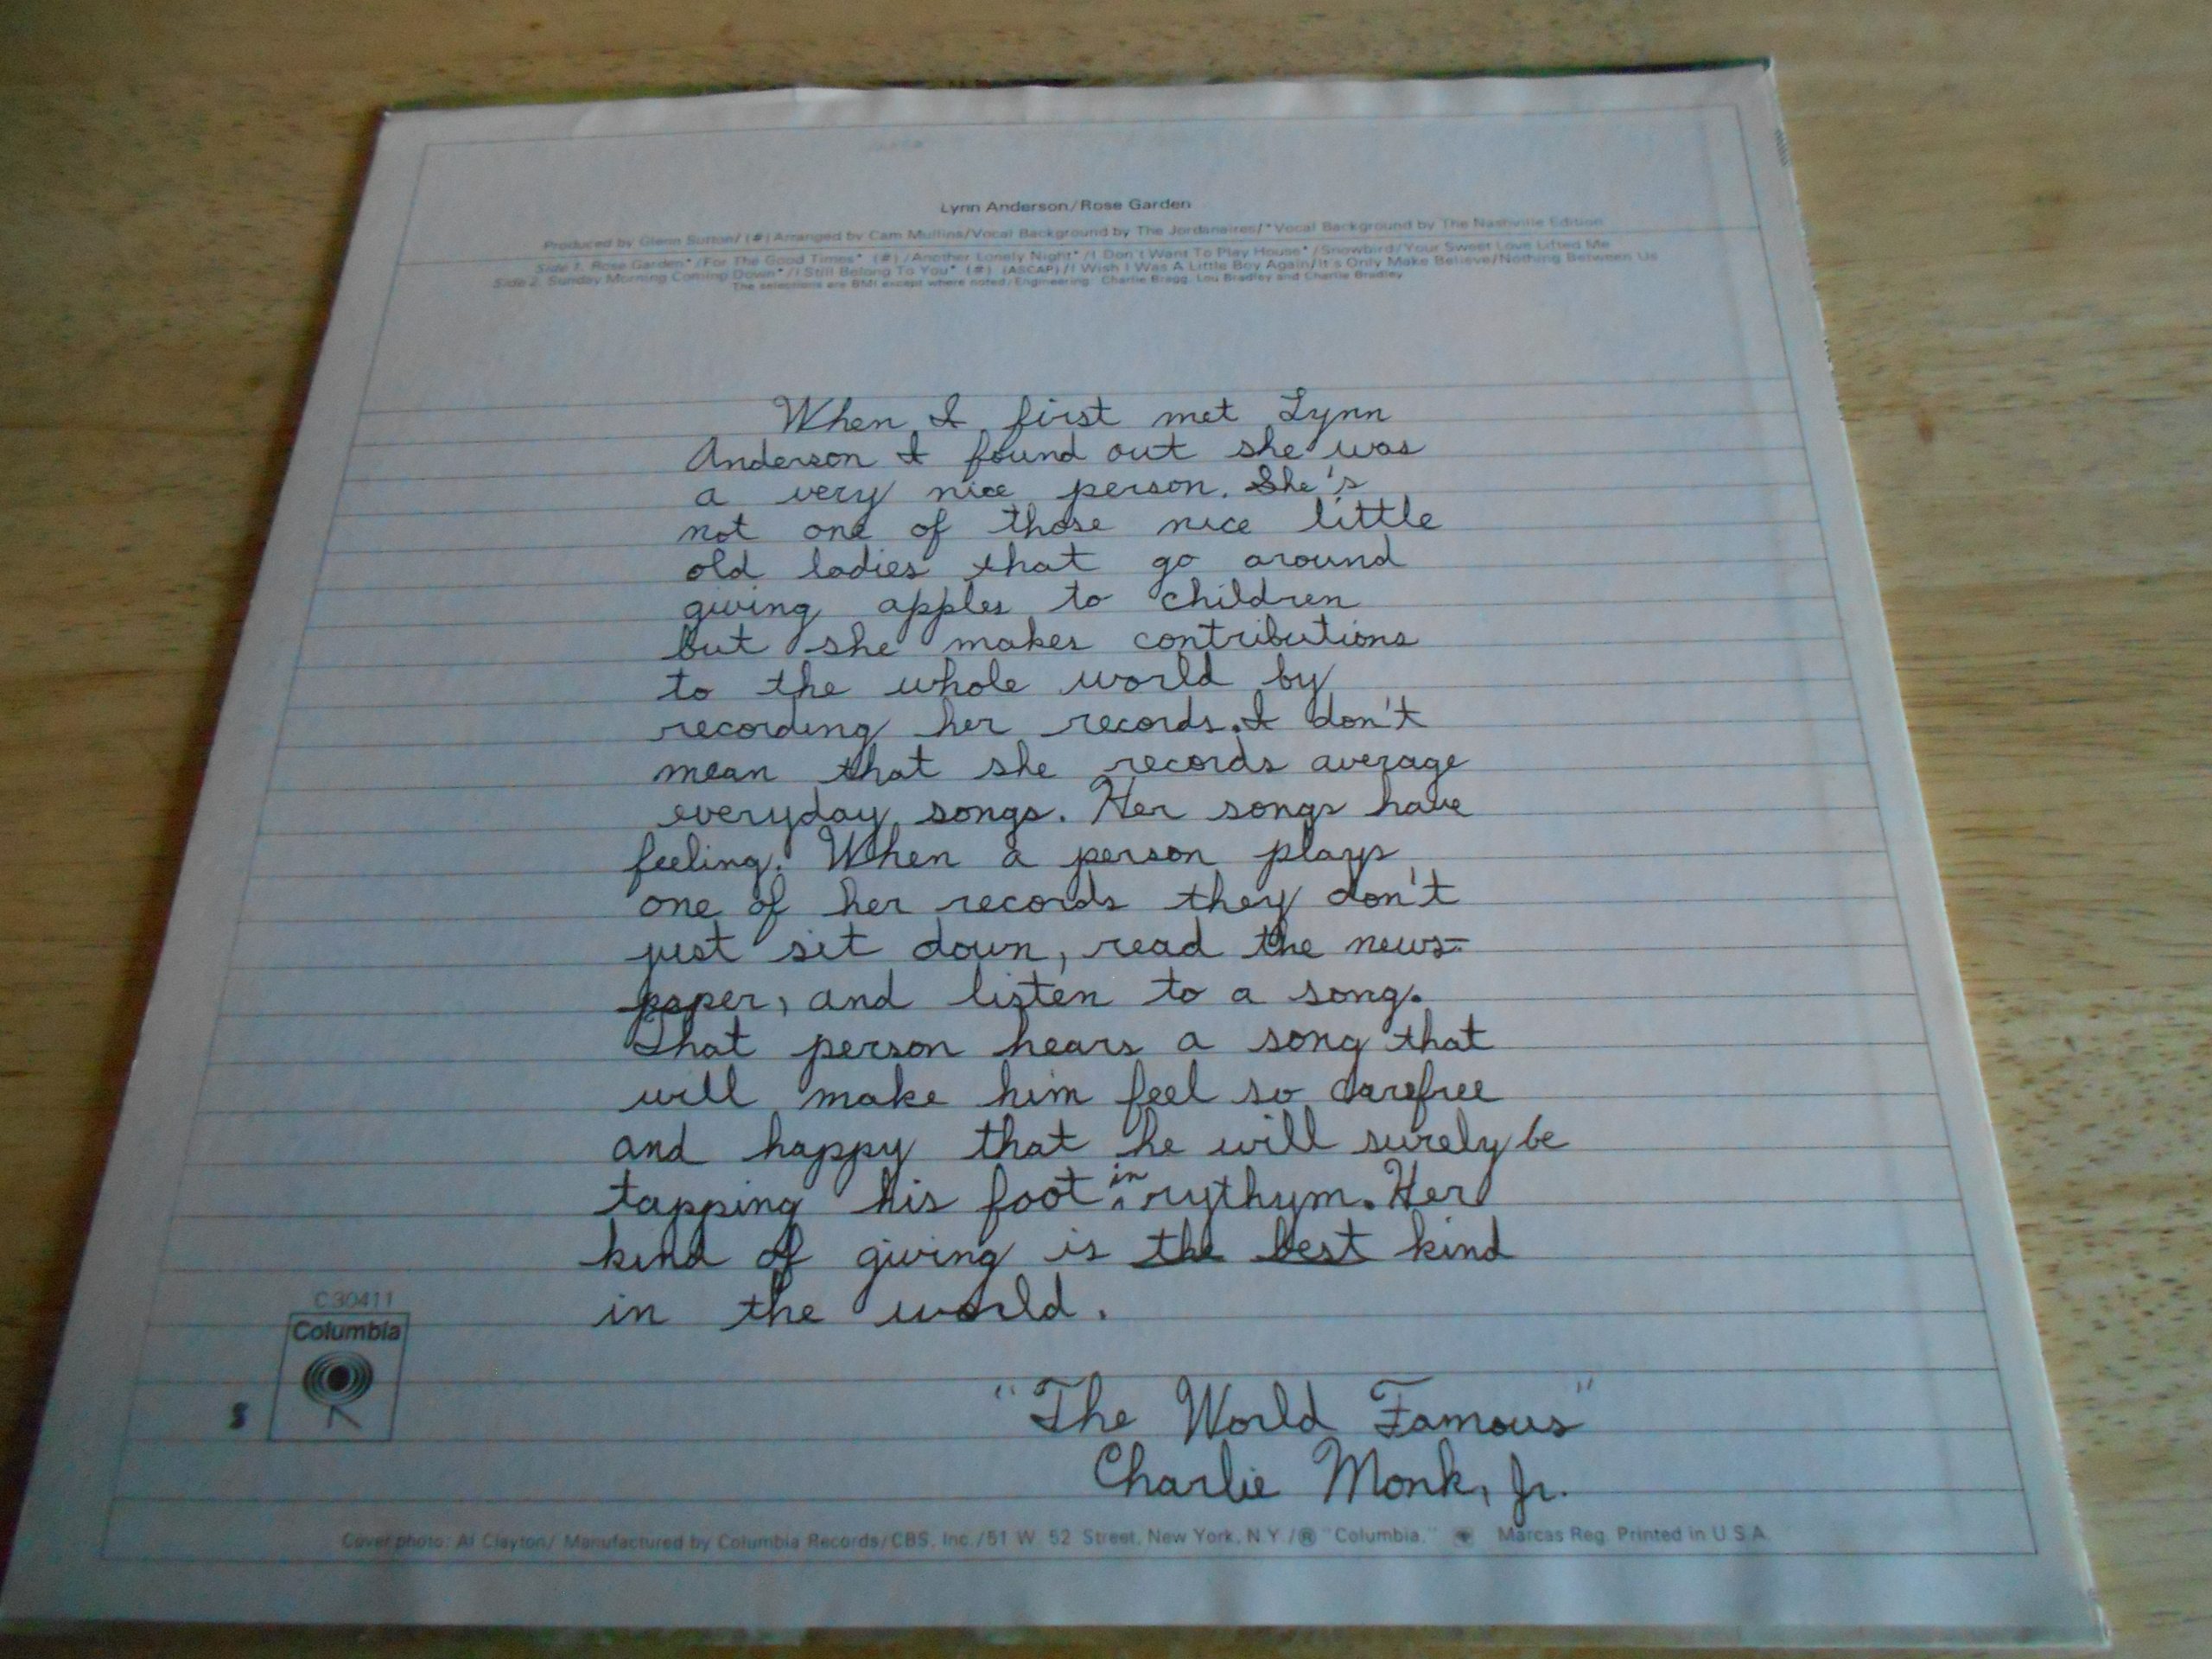 Lynn Anderson/Rose Garden
Produced by Glenn Sutton/ (#) Arranged by Cam Mullins/Vocal Background by The Jordanaires/*Vocal Background by The Nashville Edition
Side 1. Rose Garden* /For The Good Times* (#) /Another Lonely Night* /I Don't Want To Play House* /Snowbird/Your Sweet Love Lifted Me
Side 2. Sunday Morning Coming Down* /I Still Belong To You* (#) (ASCAP)/I Wish I Was A Little Boy Again/It's Only Make Believe/Nothing Between Us
The selections are BMI except where noted/Engineering: Charlie Bragg, Lou Bradley and Charlie Bradley
When I first met Lynn
Anderson I found out she was
a very nice person. She's
not one of those nice little
old ladies that go around
giving apples to children
but she makes contributions
to the whole world by
recording her records. I don't
mean that she records average
everyday songs. Her songs have
feeling. When a person plays
one of her records they don't
just sit down, read the news-
paper, and listen to a song.
That person hears a song that
will make him feel so carefree
and happy that he will surely be
tapping his foot in rythym. Her
kind of giving is the best kind
in the world.
"The World Famous"
Charlie Monk, Jr.
C 30411
Columbia
S
Cover photo: Al Clayton/ Manufactured by Columbia Records/CBS, Inc./51 W. 52 Street, New York, N.Y./® "Columbia," Marcas Reg. Printed in U.S.A.